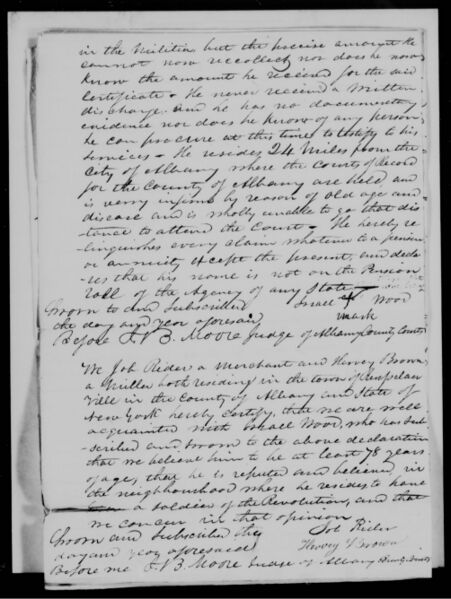 in the Militia but the precise amount He
cannot now recollect nor does he now
know the amount he received for the said
Certificate. He never received a written
discharge. and he has no documentary
evidence nor does he know of any person
he can procure at this time to testify to his
services - He resides 24 Miles from the
City of Albany where the Courts of Record
for the County of Albany are held and
is verry infirm by reason of old age and
disease and is wholly unable to go that dis-
tance to attend the Court - He hereby re-
linquishes every claim whatever to a pension
or annuity except the present, and decla-
res that his name is not on the Pension
roll of the Agency of any State
Sworn to and Subscribed Israel Wood
the day and year aforesaid mark
Before J. B. Moore Judge of Albany County Courts
We Job Rider a Merchant and Hervey Brown
a Miller both residing in the town of Renselaer
Vill in the County of Albany and State of
New York hereby Certify, that we are well
acquainted with Israel Wood, who has Sub-
scribed and sworn to the above declaration
that we believe him to be at least 78 years
of age, that he is reputed and believed in
the neighbourhood where he resides to have
a soldier of the Revolution, and that
we concur in that opinion
Sworn and Subscribed the Job Rider
day and year aforesaid Hervey Brown
Before me J. B. Moore Judge of Albany County Courts